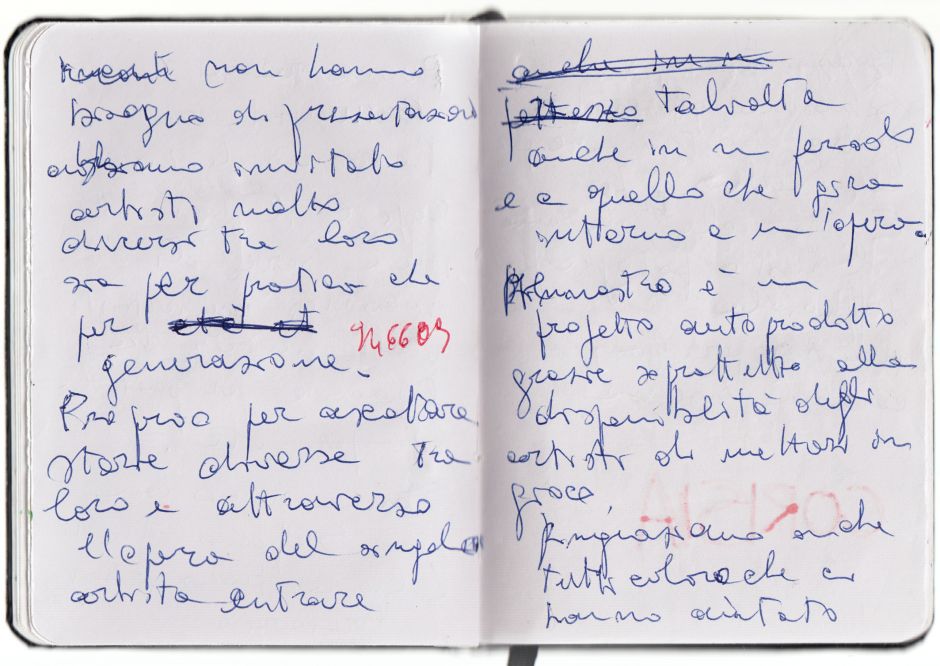 racconti non hanno
bisogno di presentazioni
abbiamo invitato
artisti molto
diversi tra loro
sia per pratica che
per età et
generazione.
Proprio per ascoltare
storie diverse tra
loro e attraverso
l'opera del singolo
artista entrare
anche in un
pettesso talvolta
anche in un periodo
e a quello che gira
intorno a un'opera.
è un
progetto autoprodotto
grazie soprattutto alla
disponibilità degli
artisti di mettersi in
gioco
Ringraziamo anche
tutti coloro che ci
hanno aiutato